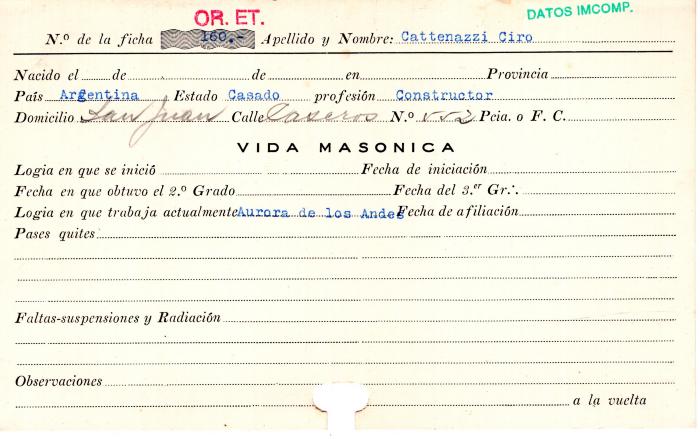 OR. ET.
DATOS IMCOMP.
N.º de la ficha 160.- Apellido y Nombre: Cattenazzi Ciro
Nacido el de de en Provincia
País Argentina Estado Casado profesión Constructor
Domicilio San Juan Calle Caseros N.º Pcia. o F. C.
VIDA MASONICA
Logia en que se inició Fecha de iniciación
Fecha en que obtuvo el 2.º Grado Fecha del 3.er Gr∴
Logia en que trabaja actualmente Aurora de los Andes Fecha de afiliación
Pases quites
Faltas-suspensiones y Radiación
Observaciones
a la vuelta